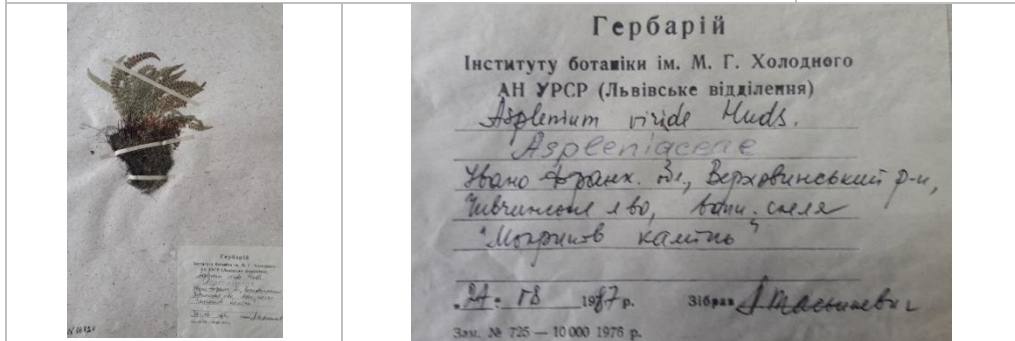 Гербарій
Інституту ботаніки ім. М. Г. Холодного
АН УРСР (Львівське відділення)
Asplenium viride Huds.
Aspleniaceae
Івано Франк. обл., Верховинський р-н,
Чивчинське л-во, вапн. скеля
"Мокринів камінь"
24. 08 1987 р. Зібрав
Зам. № 725 — 10 000 1976 р.